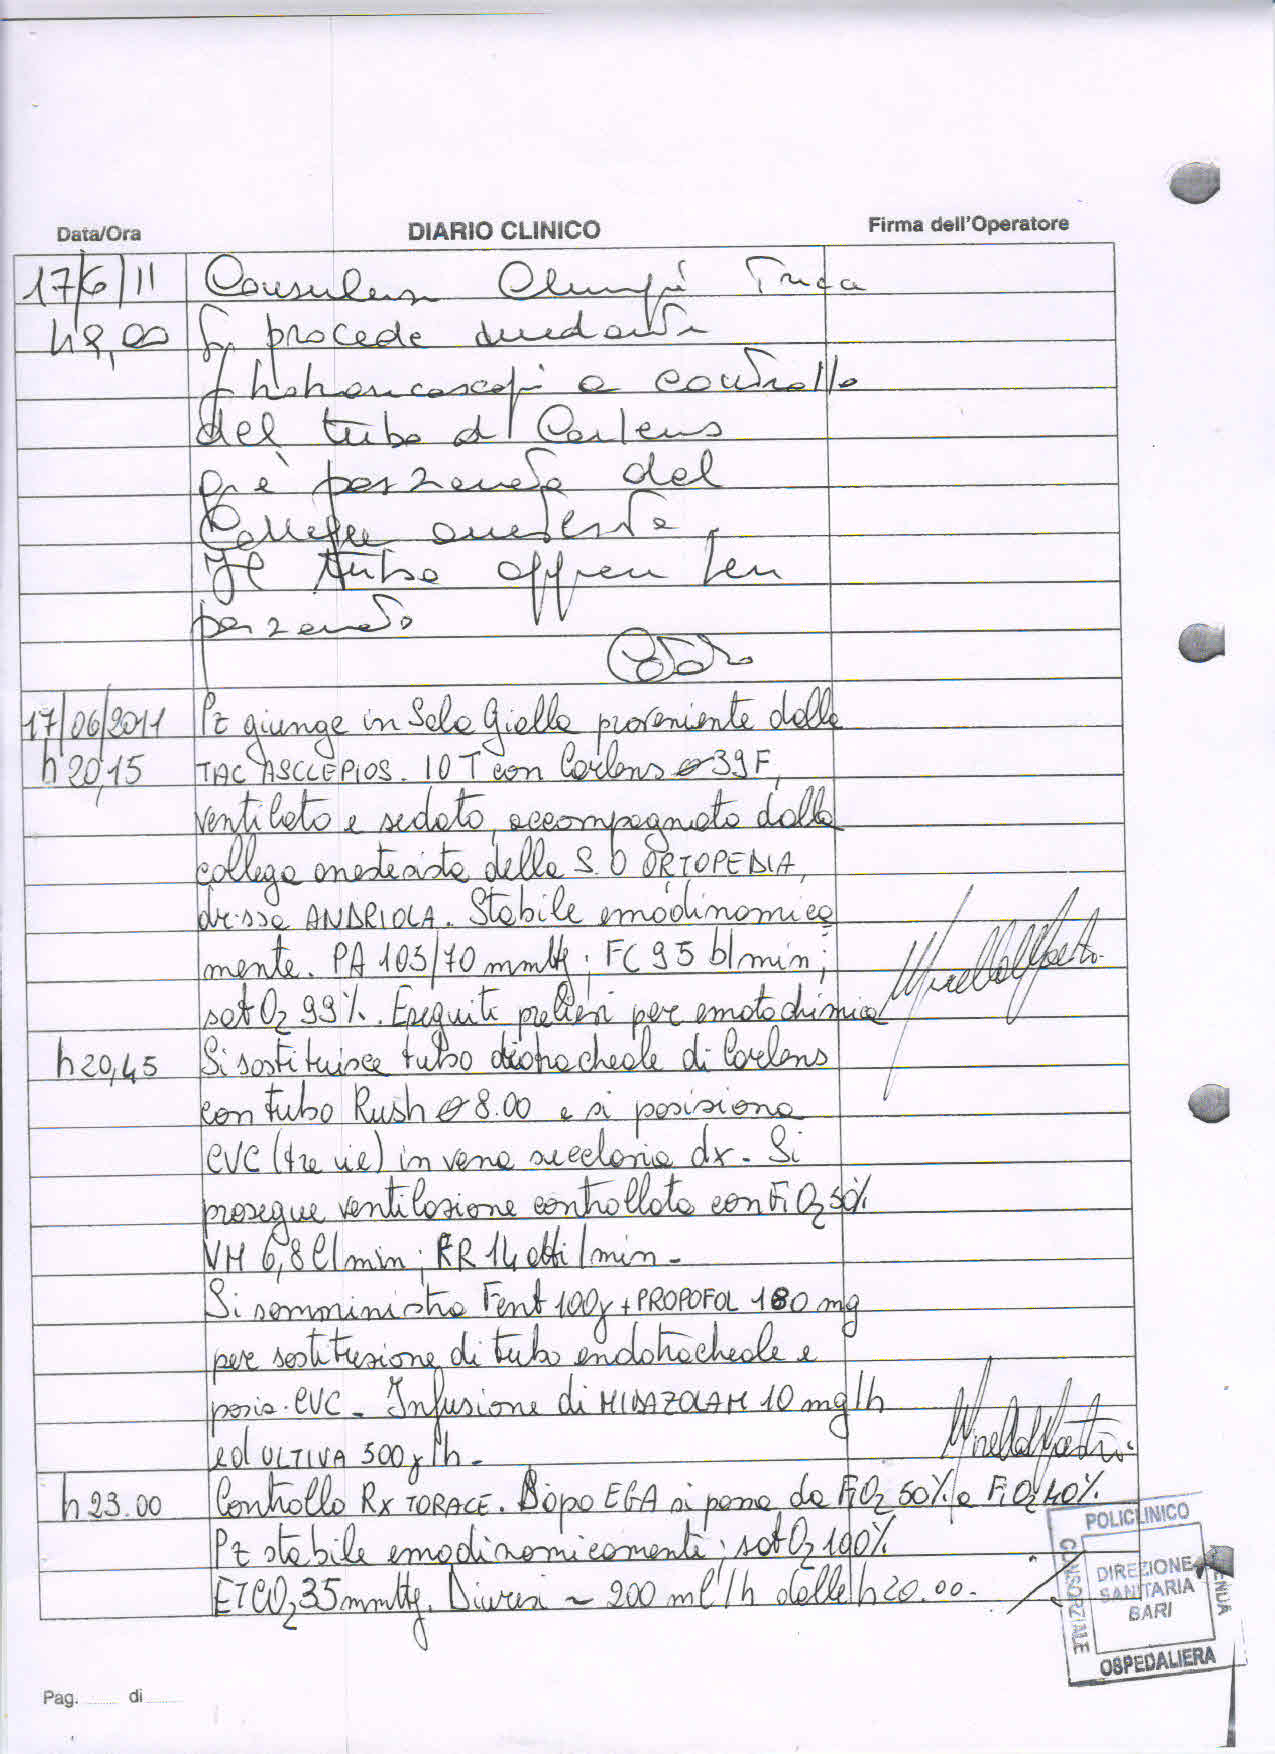 Data/Ora DIARIO CLINICO Firma dell'Operatore
17/6/11 Consulenza
h 9,00 Si procede mediante
a controllo
del tubo di Carlens
già posizionato dal
Collega anestesista.
Il tubo appare ben
posizionato
17/06/2011 Pz giunge in Sala Gialla proveniente dalla
h 20,15 TAC ASCLEPIOS. IOT con Carlens ø 39F,
ventilato e sedato, accompagnato dalla
collega anestesista della S.O ORTOPEDIA,
dr.ssa ANDRIOLA. Stabile emodinamica
mente. PA 105/70 mmHg; FC 95 b/min;
sat O2 99%. Eseguiti prelievi per ematochimica
h 20,45 Si sostituisce tubo di Carlens
con tubo Rush ø 8.00 e si posiziona
CVC (tre vie) in vena succlavia dx. Si
prosegue ventilazione controllata con FiO2 50%
VM 6,8 l/min; RR 14 atti/min.
Si somministra Fent 100γ + PROPOFOL 180 mg
per sostituzione di tubo endotracheale e
posiz. CVC. Infusione di MIDAZOLAM 10 mg/h
ed ULTIVA 500γ/h.
h 23.00 Controllo RX TORACE. Dopo EGA si passa da FiO2 50% a FiO2 40%.
Pz stabile emodinamicamente; sat O2 100%
ETCO2 35 mmHg. Diuresi ~ 200 ml/h dalle h 20.00.
POLICLINICO
CONSORZIALE
DIREZIONE
SANITARIA
BARI
OSPEDALIERA
Pag. di